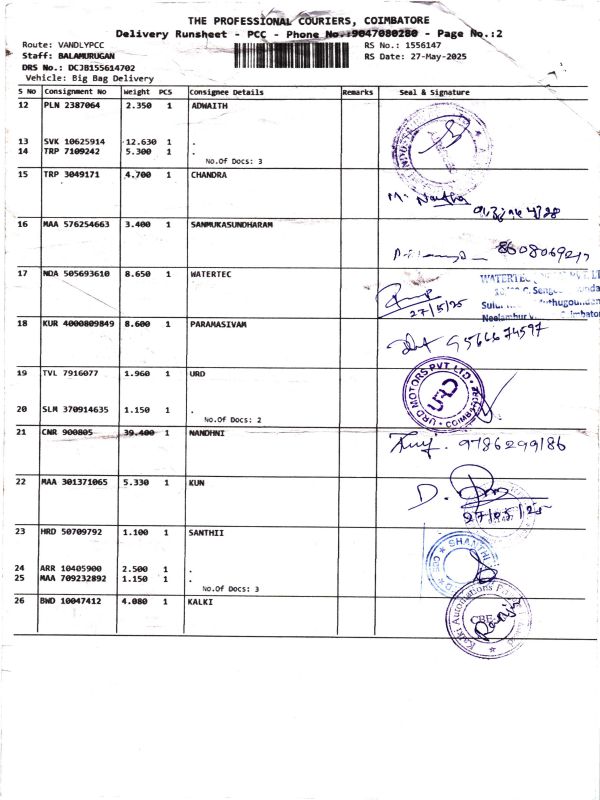 THE PROFESSIONAL COURIERS, COIMBATORE
Delivery Runsheet - PCC - Phone No.:9047080280 - Page No.:2
Route: VANDLYPCC RS No.: 1556147
Staff: BALAMURUGAN RS Date: 27-May-2025
DRS No.: DCJB155614702
Vehicle: Big Bag Delivery
S No Consignment No Weight PCS Consignee Details Remarks Seal & Signature
12 PLN 2387064 2.350 1 ADWAITH
13 SVK 10625914 12.630 1 .
14 TRP 7109242 5.300 1 .
No.Of Docs: 3
15 TRP 3049171 4.700 1 CHANDRA
16 MAA 576254663 3.400 1 SANMUKASUNDHARAM
17 NDA 505693610 8.650 1 WATERTEC
WATERTEC PVT. LT
27/5/25
18 KUR 4000809849 8.600 1 PARAMASIVAM
9566674597
19 TVL 7916077 1.960 1 URD
URD MOTORS PVT LTD.
URD
COIMBATORE
20 SLM 370914635 1.150 1 .
No.Of Docs: 2
21 CNR 900805 39.400 1 NANDHNI
9786299186
22 MAA 301371065 5.330 1 KUN
27/05/25
23 HRD 50709792 1.100 1 SANTHII
SHANTHI
24 ARR 10405900 2.500 1 .
25 MAA 709232892 1.150 1 .
No.Of Docs: 3
26 BWD 10047412 4.080 1 KALKI
Kalki Automations
CBE